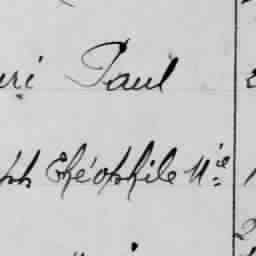 uri Paul
ph Théophile N.ie